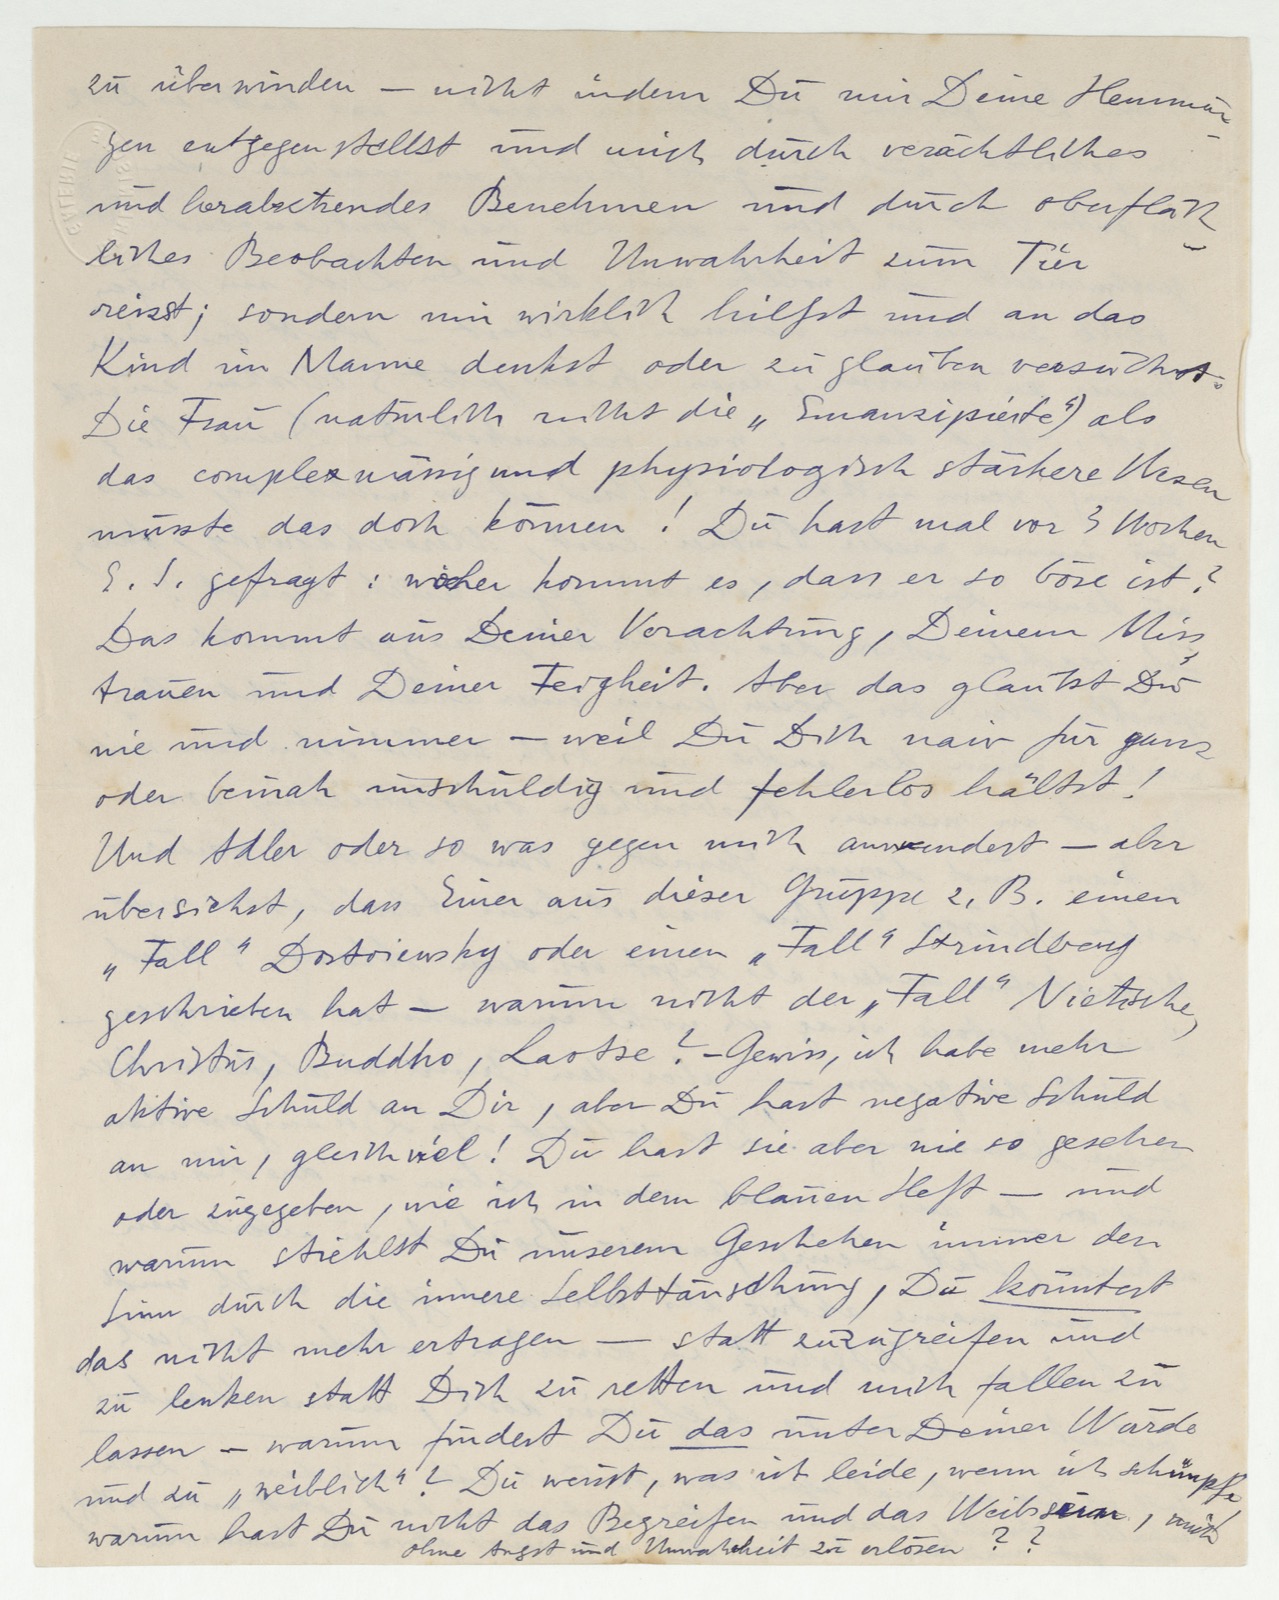 zu überwinden — nicht indem Du mir Deine Hemmun-
gen entgegenstellst und mich durch verächtliches
und herabsetzendes Benehmen und durch oberfläch-
liches Beobachten und Unwahrheit zum Tier
reizst; sondern mir wirklich hilfst und an das
Kind im Manne denkst oder zu glauben versuchst.
Die Frau (natürlich nicht die „Emanzipierte“) als
das complexmässig und physiologisch stärkere Wesen
müsste das doch können! Du hast mal vor 3 Wochen
E. S. gefragt: woher kommt es, dass er so böse ist?
Das kommt aus Deiner Verachtung, Deinem Miss-
trauen und Deiner Feigheit. Aber das glaubst Du
nie und nimmer — weil Du Dich naiv für ganz
oder beinah unschuldig und fehlerlos hältst!
Und Adler oder so was gegen mich anwendest — aber
übersiehst, dass Einer aus dieser Gruppe z. B. einen
„Fall“ Dostoiewsky oder einen „Fall“ Strindberg
geschrieben hat — warum nicht der „Fall“ Nietzsche,
Christus, Buddho, Laotse? — Gewiss, ich habe mehr
aktive Schuld an Dir, aber Du hast negative Schuld
an mir, gleichviel! Du hast sie aber nie so gesehen
oder zugegeben, wie ich in dem blauen Heft — und
warum stiehlst Du unserem Geschehen immer den
Sinn durch die innere Selbsttäuschung, Du könntest
das nicht mehr ertragen — statt zuzugreifen und
zu lenken statt Dich zu retten und mich fallen zu
lassen — warum findest Du das unter Deiner Würde
und zu „weiblich“? Du weisst, was ich leide, wenn ich schimpfe
warum hast Du nicht das Begreifen und das Weibsein, mich
ohne Angst und Unwahrheit zu erlösen ? ?